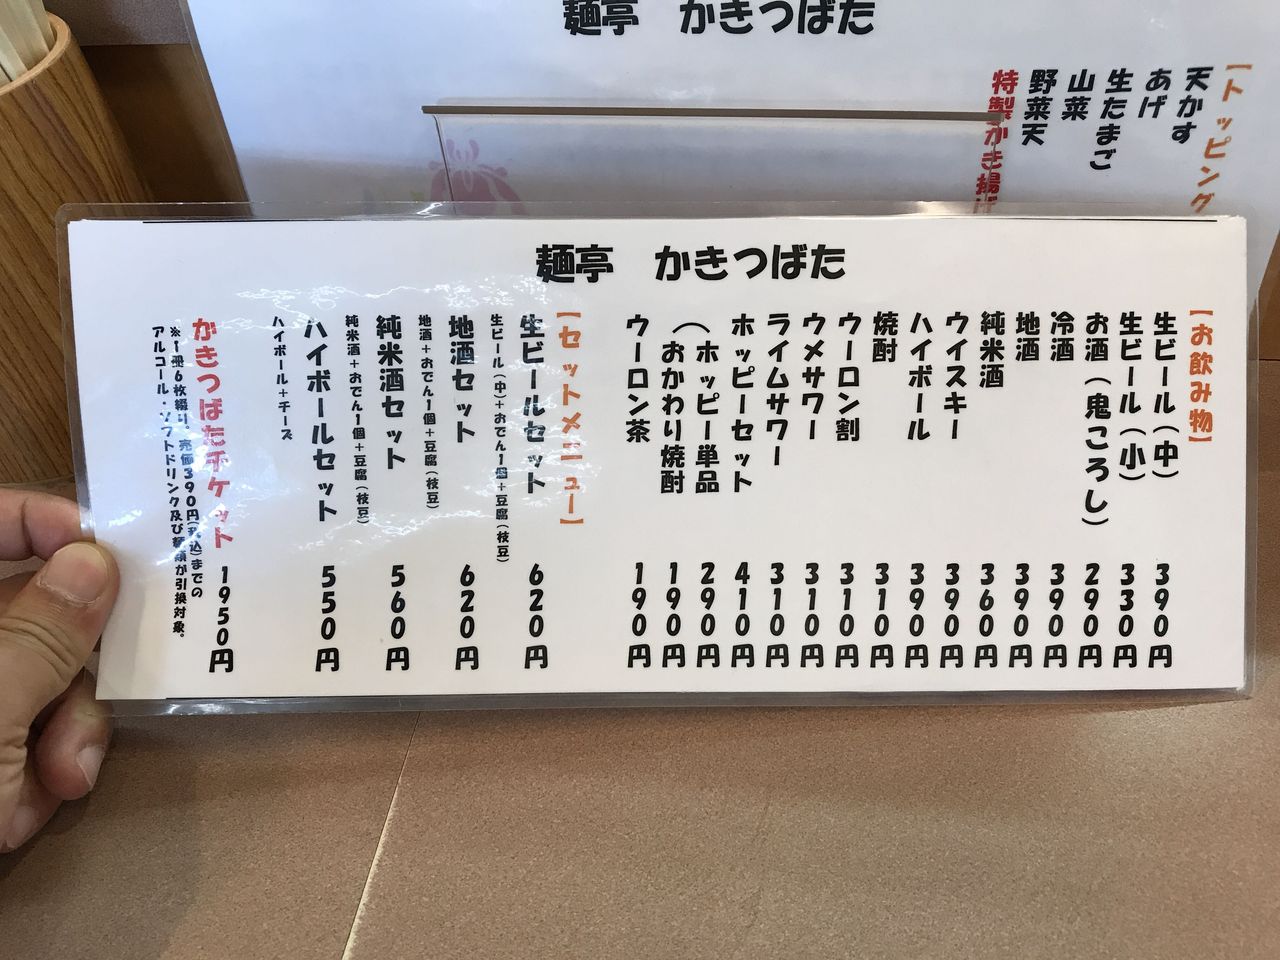 麺亭 かきつばた
【トッピング
天かす
あげ
生たまご
山菜
野菜天
特製かき揚げ
麺亭 かきつばた
【お飲み物】
生ビール(中) 390円
生ビール(小) 330円
お酒(鬼ころし) 290円
冷酒 390円
地酒 390円
純米酒 360円
ウイスキー 390円
ハイボール 390円
焼酎 310円
ウーロン割 310円
ウメサワー 310円
ライムサワー 310円
ホッピーセット 410円
(ホッピー単品 290円
(おかわり焼酎 190円
ウーロン茶 190円
【セットメニュー】
生ビールセット 620円
生ビール(中)+おでん1個+豆腐(枝豆)
地酒セット 620円
地酒+おでん1個+豆腐(枝豆)
純米酒セット 560円
純米酒+おでん1個+豆腐(枝豆)
ハイボールセット 550円
ハイボール+チーズ
かきつばたチケット 1950円
※1冊6枚綴り、売価390円(税込)までの
アルコール・ソフトドリンク及び麺類が引換対象。